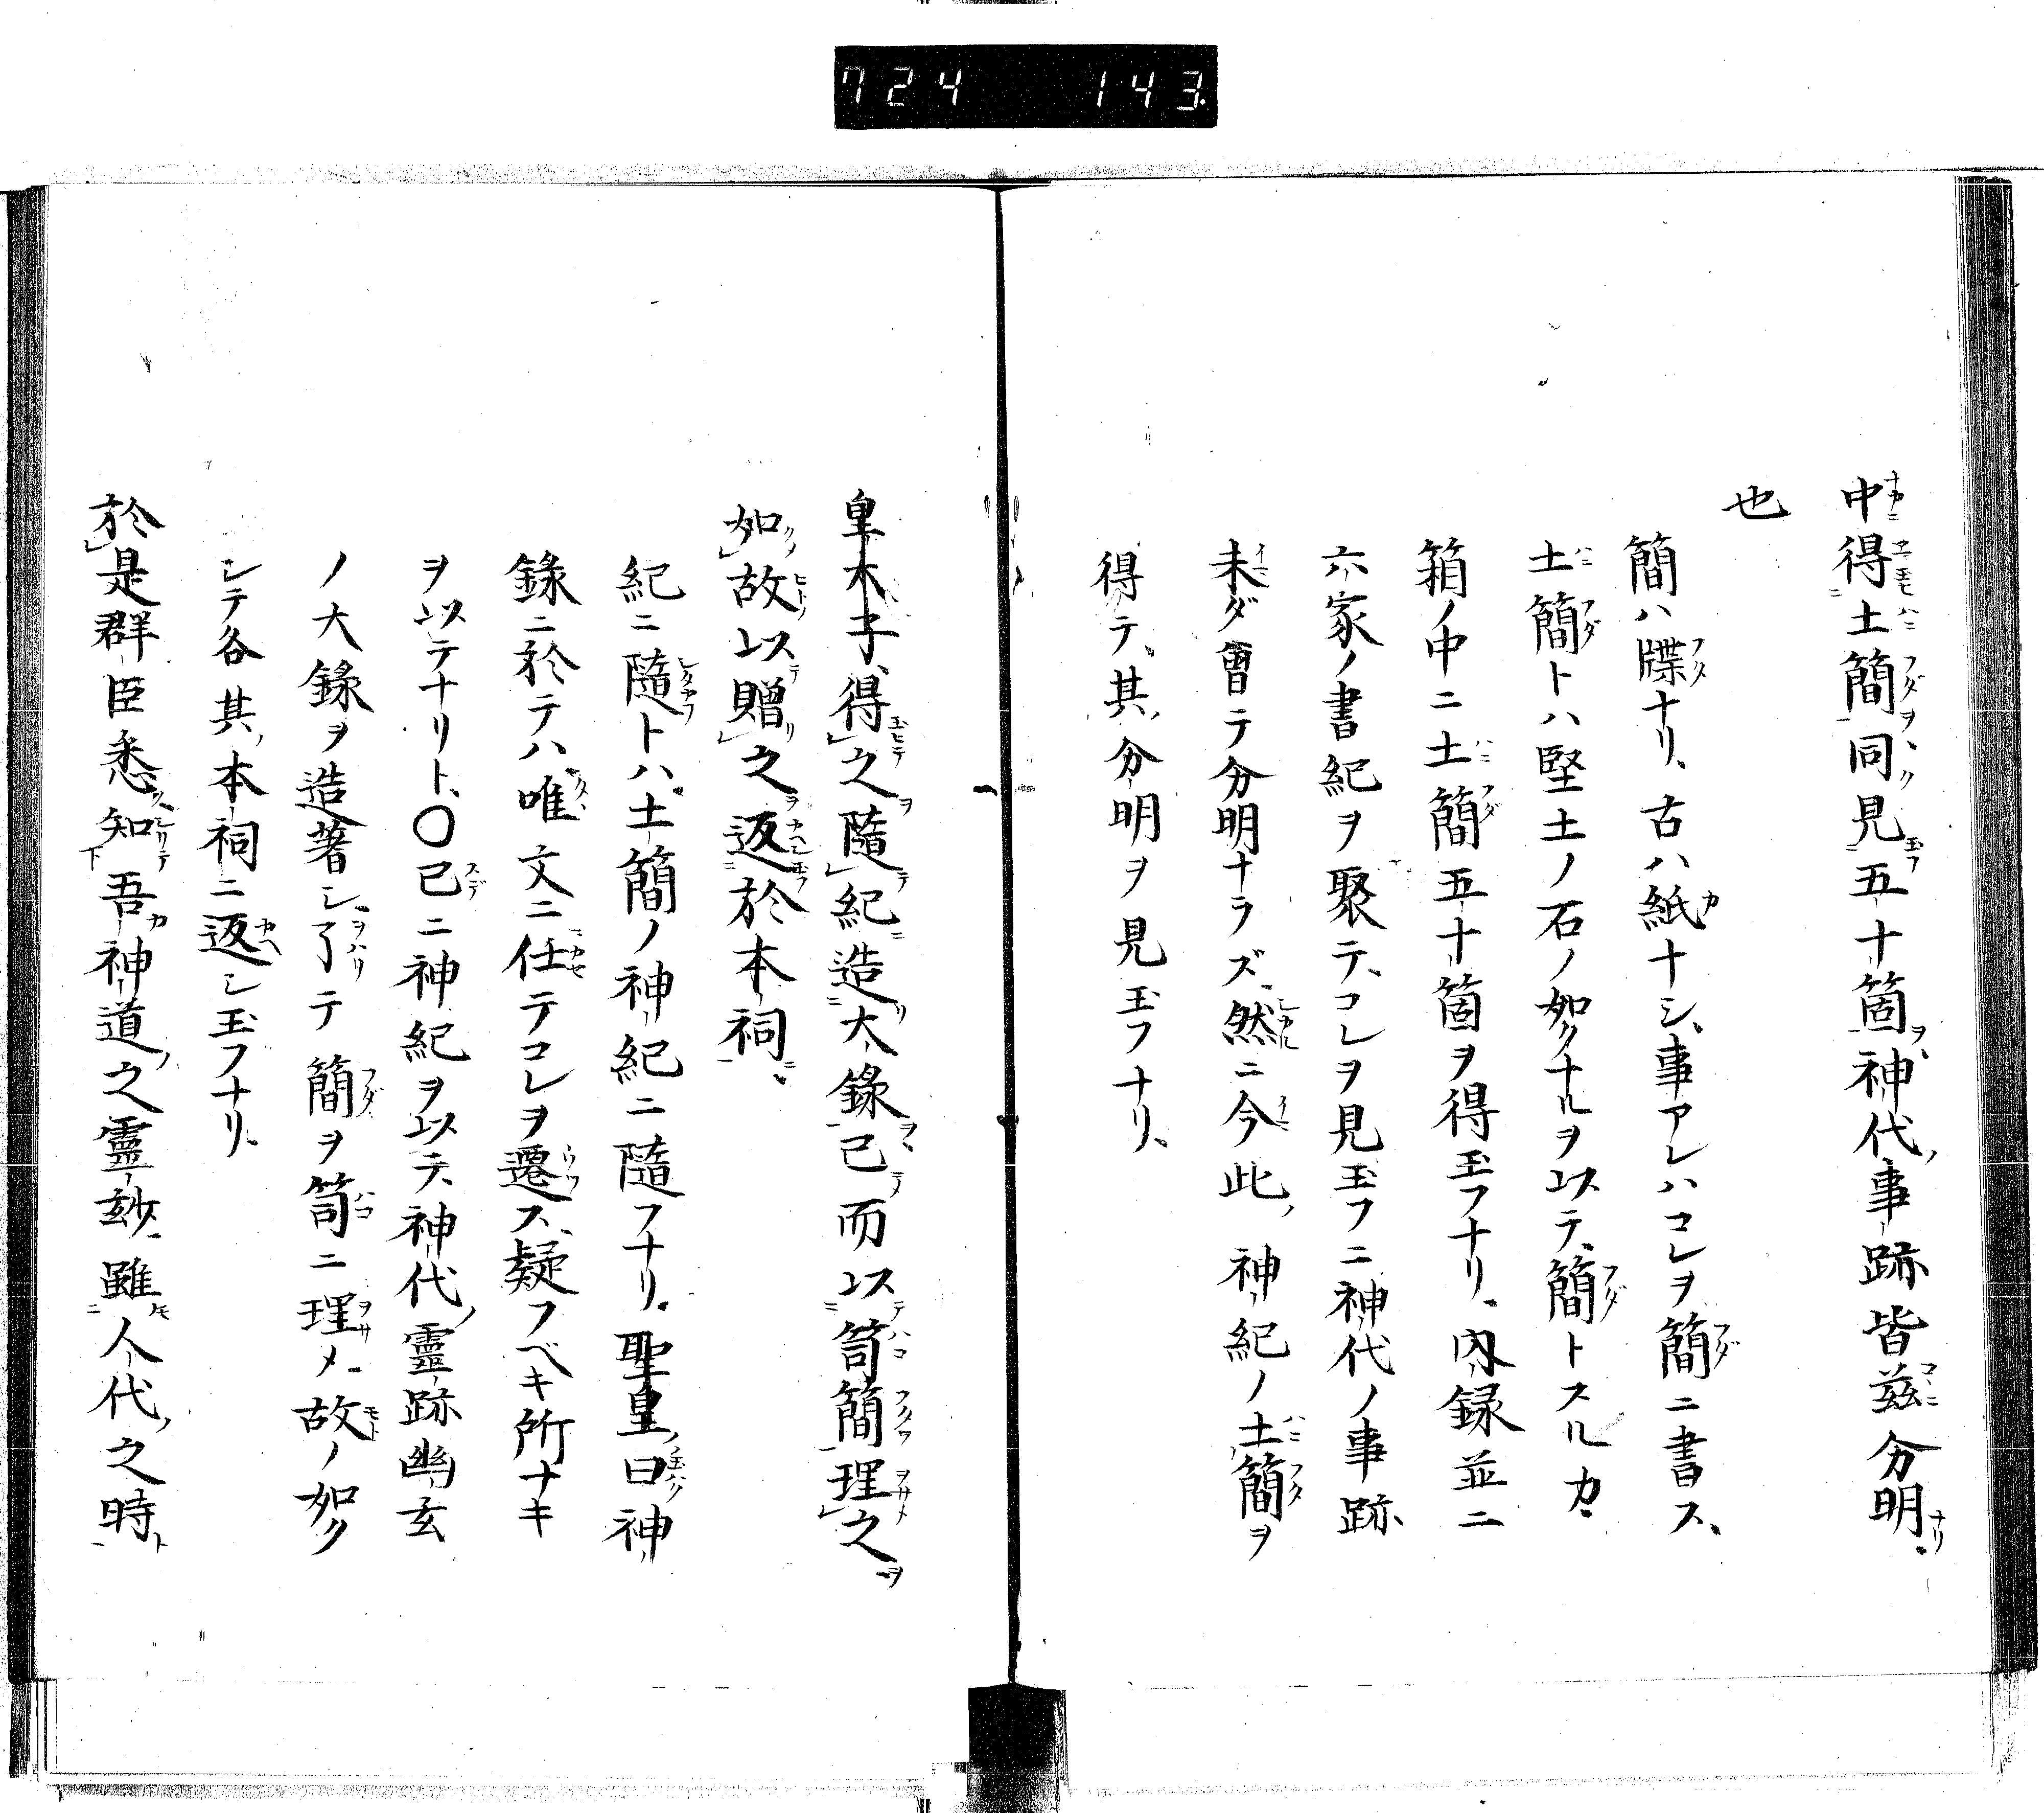 724 143
中得土簡同見五十箇神代事跡皆茲分明
也
簡ハ牒ナリ、古ハ紙ナシ、事アレハコレヲ簡ニ書ス、
土簡トハ堅土ノ石ノ如クナルヲ以テ、簡トスルカ
箱ノ中ニ土簡五十箇ヲ得玉フナリ、内録並ニ
六家ノ書紀ヲ聚テ、コレヲ見玉フニ神代ノ事跡
未ダ曾テ分明ナラズ、然ニ今此ノ神紀ノ土簡ヲ
得テ、其ノ分明ヲ見玉フナリ、
皇太子得之隨紀造大錄已而以笥簡理之
如故以贈之返於本祠
紀ニ隨トハ土簡ノ神紀ニ隨フナリ、聖皇ノ曰神
錄ニ於テハ、唯文ニ任テコレヲ遷ス、疑フベキ所ナキ
ヲ以テナリト、〇已ニ神紀ヲ以テ、神代ノ靈跡幽玄
ノ大錄ヲ造著シ、了テ簡ヲ笥ニ理メ、故ノ如ク
シテ各其ノ本祠ニ返シ玉フナリ、
於是群臣悉知吾神道之靈玅雖人代之時